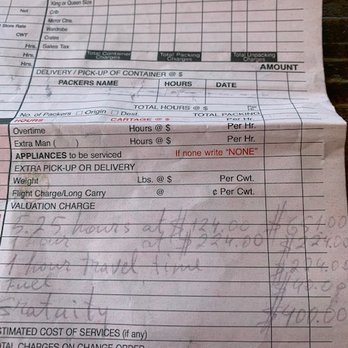 King or Queen Size
Net Crib
Mirror Ctns.
Store Rate Wardrobe
CWT Crates
Hrs. Sales Tax
Hrs. Total Container Charges Total Packing Charges Total Unpacking Charges
AMOUNT
DELIVERY / PICK-UP OF CONTAINER @ $
PACKERS NAME HOURS DATE
TOTAL HOURS @
No. of Packers Origin Dest. TOTAL PACKING
HOURS CARTAGE @ $ Per Hr.
Overtime Hours @ $ Per Hr.
Extra Man ( ) Hours @ $ Per Hr.
APPLIANCES to be serviced If none write "NONE"
EXTRA PICK-UP OR DELIVERY
Weight Lbs. @ $ Per Cwt.
Flight Charge/Long Carry @ ¢ Per Cwt.
VALUATION CHARGE
5.25 hours at
hour at $224.00 $224.00
1 hour travel time
Fuel
Gratuity $400.00
ESTIMATED COST OF SERVICES (if any)
TOTAL CHARGES ON CHANGE ORDER